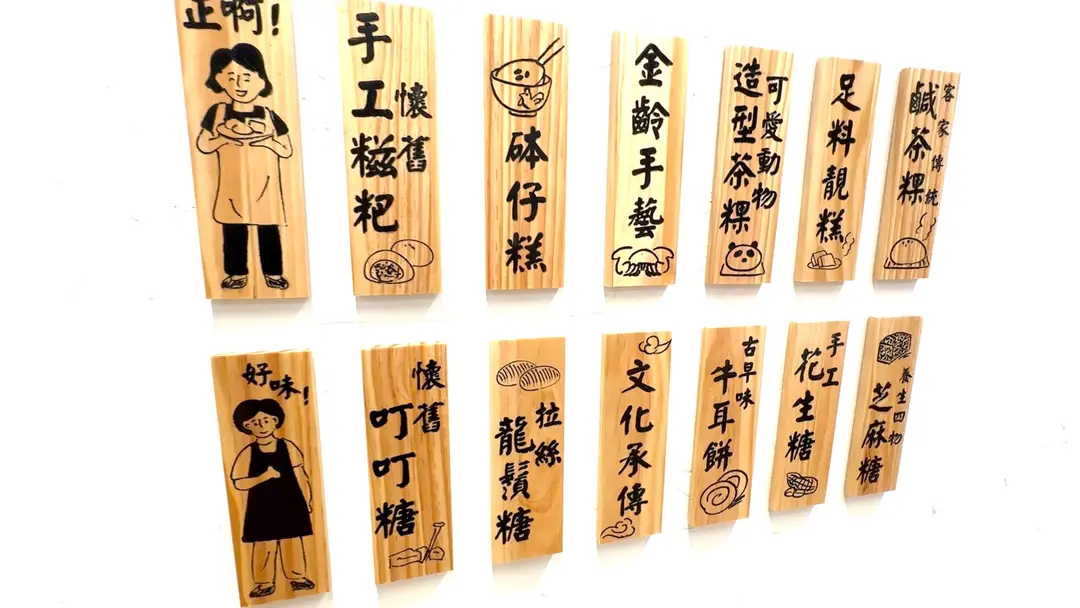 正啊!
手工糍粑
懷舊
砵仔糕
金齡手藝
造型茶粿
可愛動物
足料靚糕
鹹茶粿
客家傳統
好味!
懷舊
叮叮糖
拉絲
龍鬚糖
文化承傳
古早味
牛耳餅
手工
花生糖
養生四物
芝麻糖